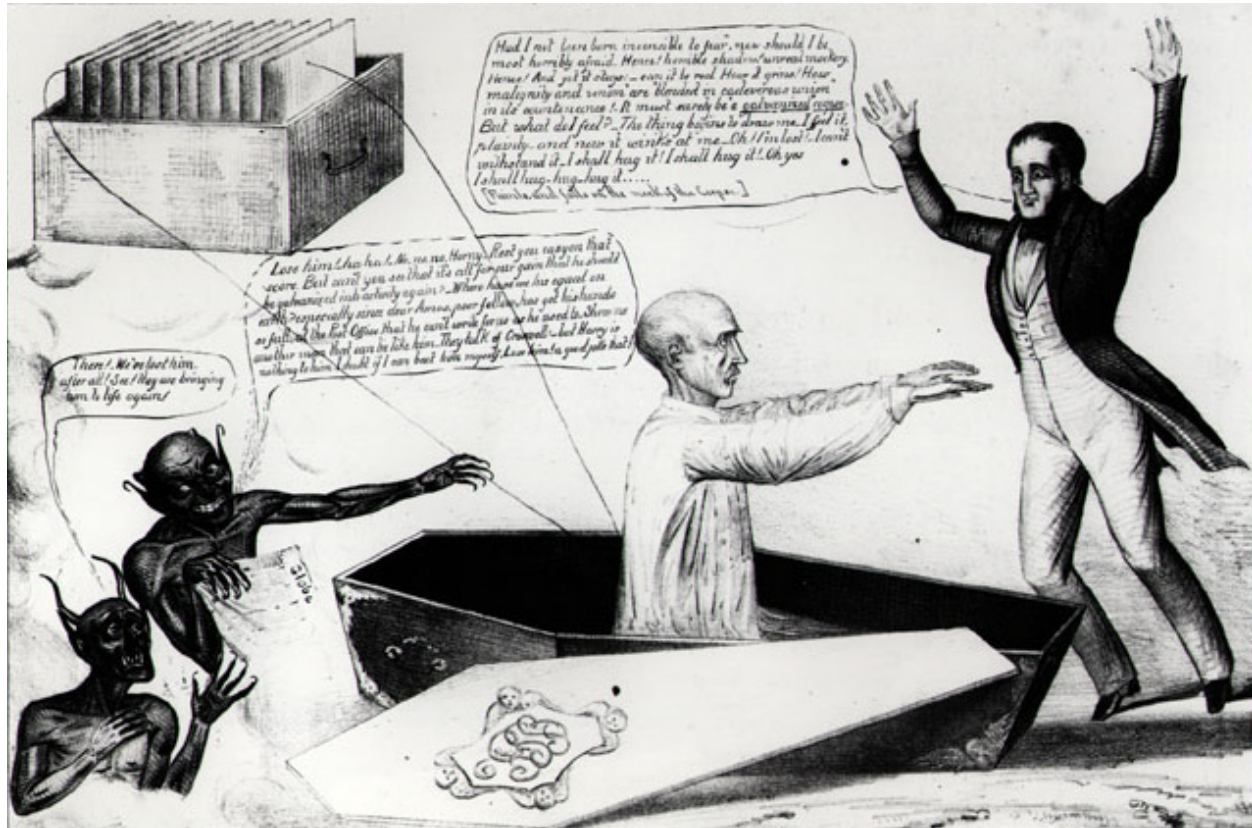 Had I not been born insensible to fear, now should I be
most horribly afraid. Hence! horrible shadow! unreal mockery.
Hence! And yet it stays: can it be real. How it grins! How
malignity and venom are "blended in cadaverous union"
in its countenance! It must surely be a galvanized corpse.
But what do I feel? The thing begins to draw me. I feel it
and now it winks at me. Oh! I'm lost! I can't
withstand it. I shall hug it! I shall hug it! Oh yes
I shall hug-hug-hug it.....
[Faints and falls on the neck of the Corpse.]
Lose him! ha ha! No, no, no, Horny. Rest you easy on that
score. But can't you see that it's all for our gain that he should
be galvanized into activity again? Where have we his equal on
earth? especially since dear Amos, poor fellow, has got his hands
so full at the Post Office that he can't write for us as he used to. Show me
another man that can lie like him. They talk of Croswell: but Harry is
nothing to him. I doubt if I can beat him myself. Lose him! a good joke that!
There! We've lost him
after all! See! they are bringing
him to life again!